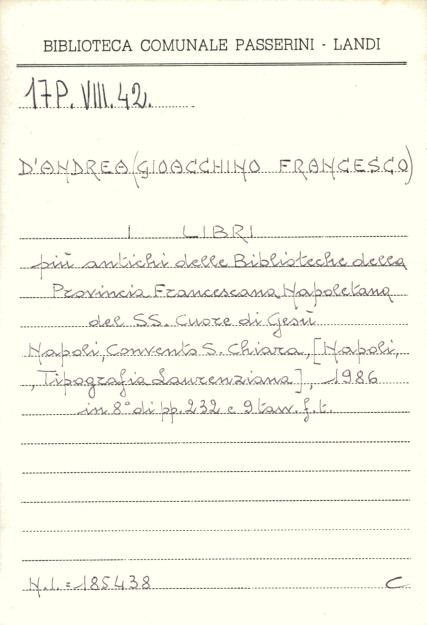 BIBLIOTECA COMUNALE PASSERINI - LANDI
17P. VIII. 42.
D'ANDREA (GIOACCHINO FRANCESCO)
I LIBRI
più antichi delle Biblioteche della
Provincia Francescana Napoletana
del SS. Cuore di Gesù
Napoli, Convento S. Chiara, [Napoli,
, Tipografia Laurenziana], 1986
in 8° di pp. 232 e 9 tav. f. t.
N.I. = 185438 C